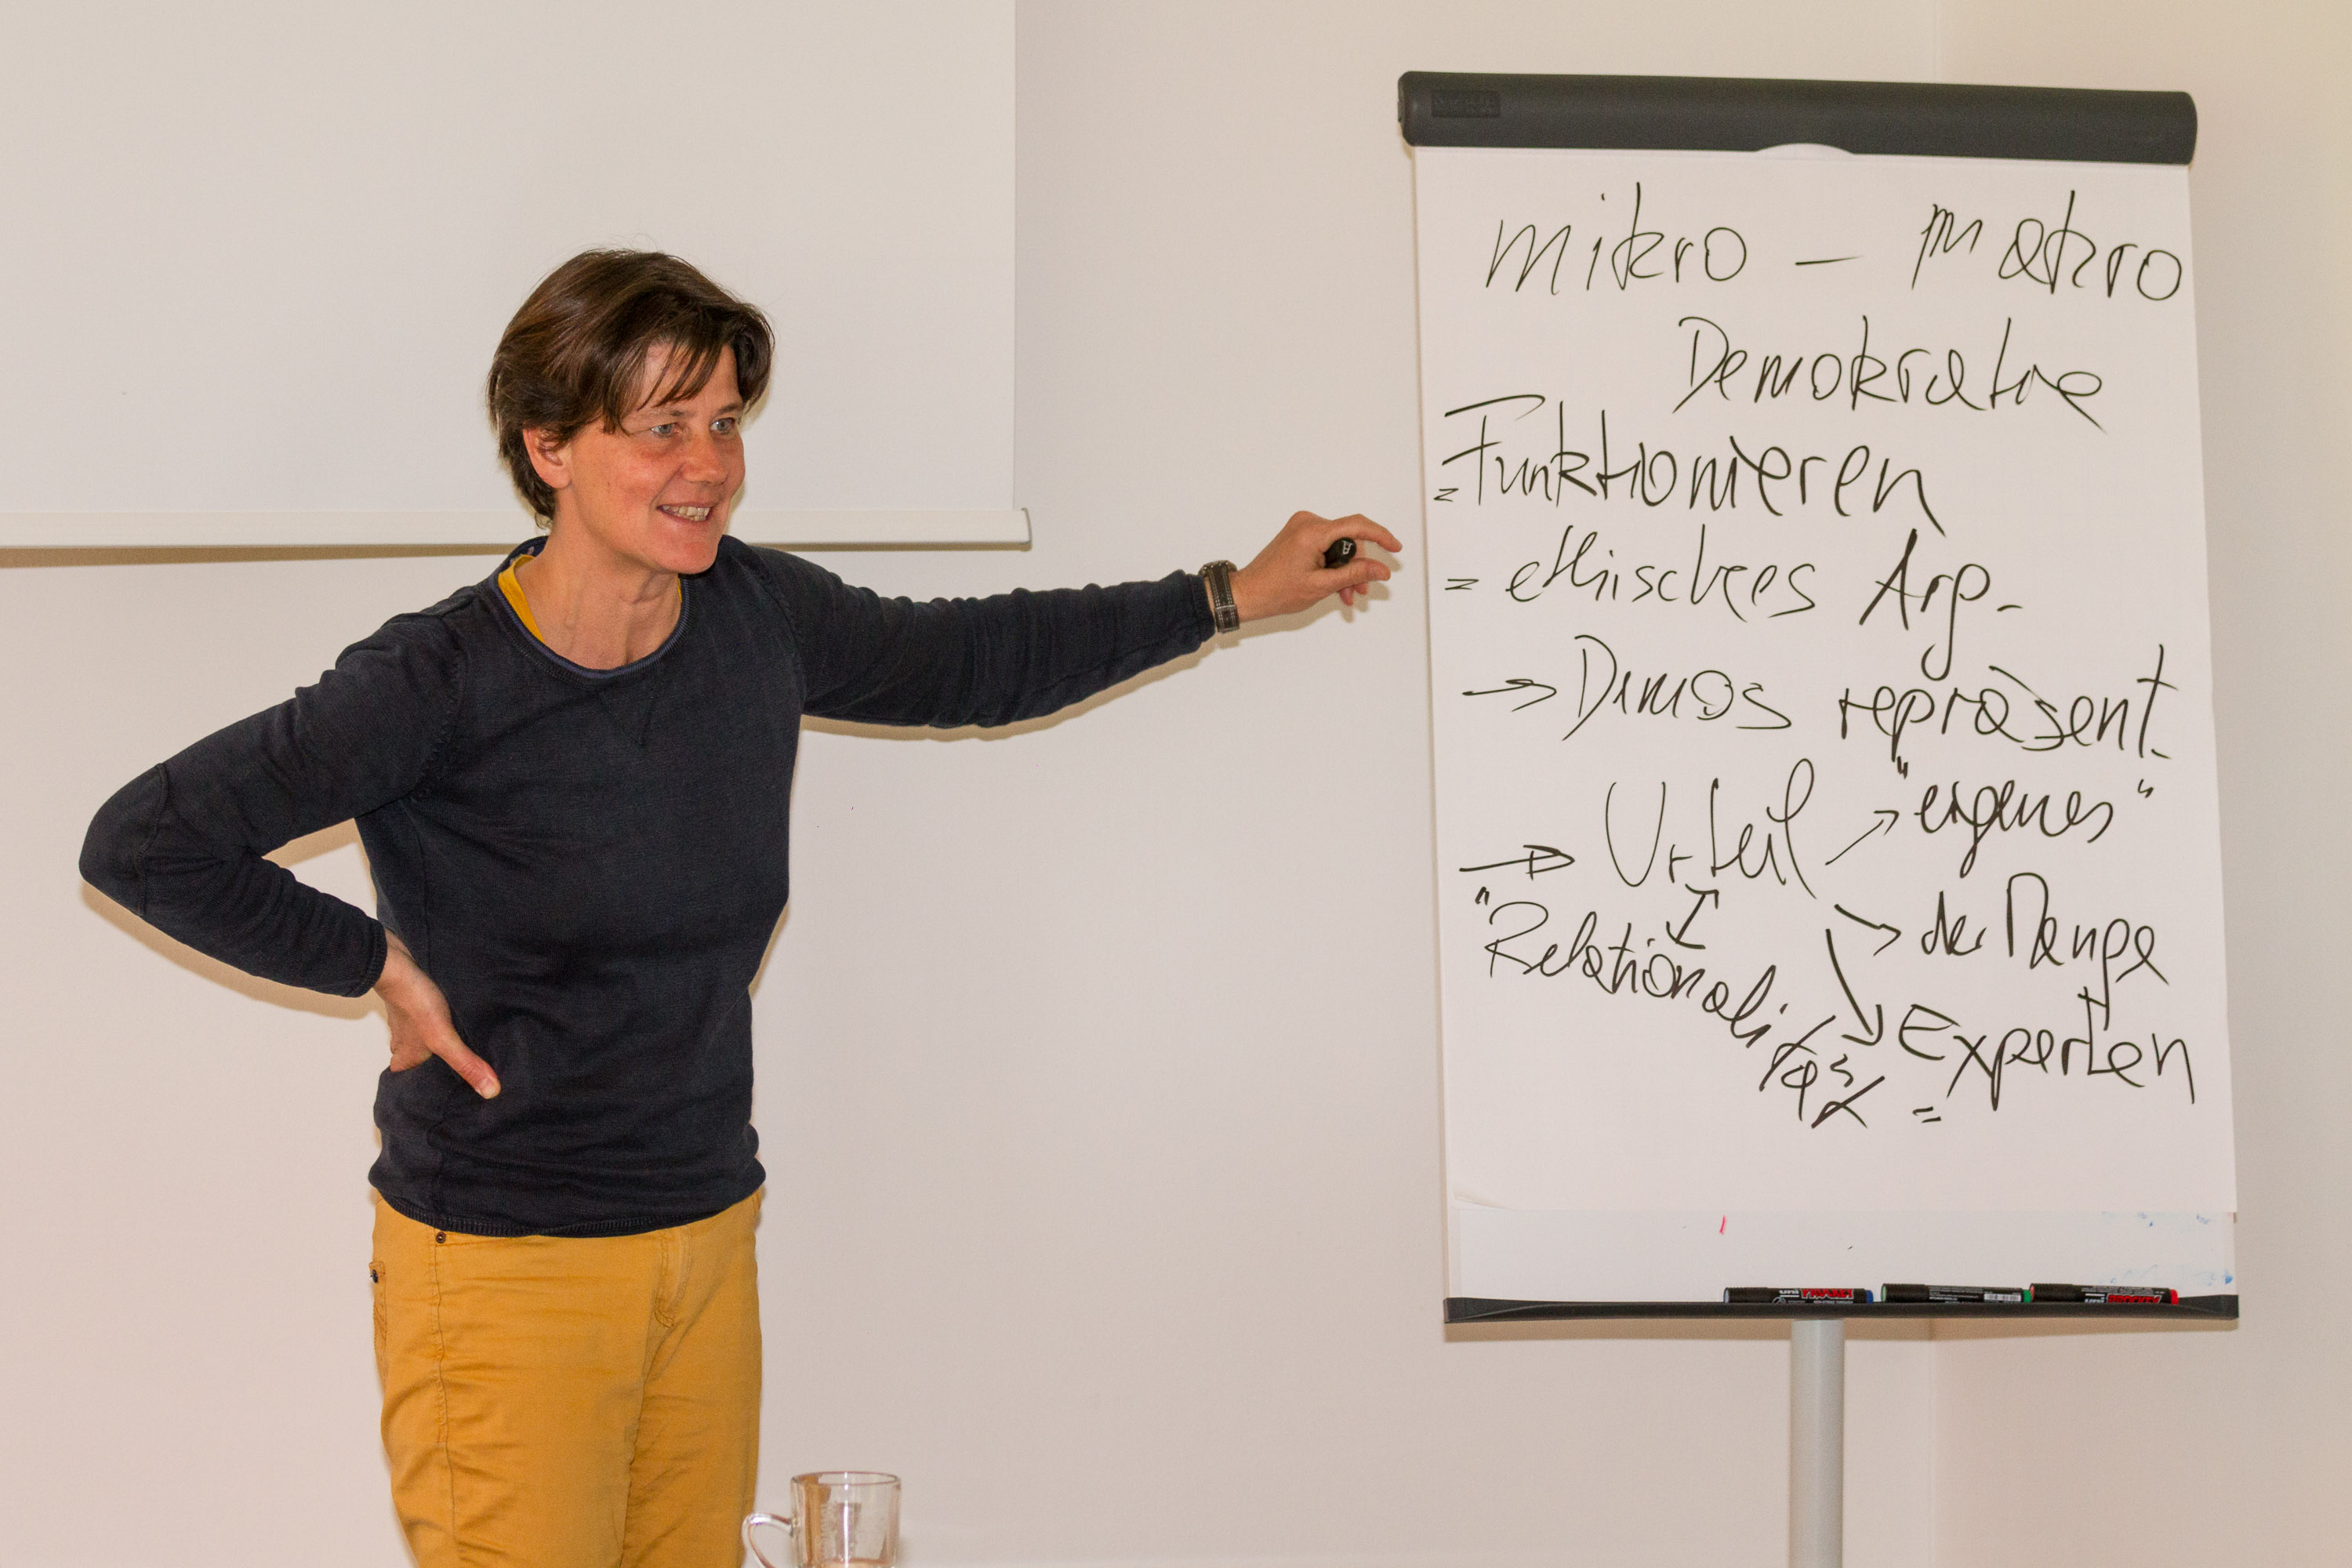 mikro – Makro
Demokratie
= Funktionieren
= ethisches Arg.
→ Demos repräsent.
→ Urteil ↗ "eigenes"
↘ der Menge
↘ Experten
"Relationali
=
uni
uni